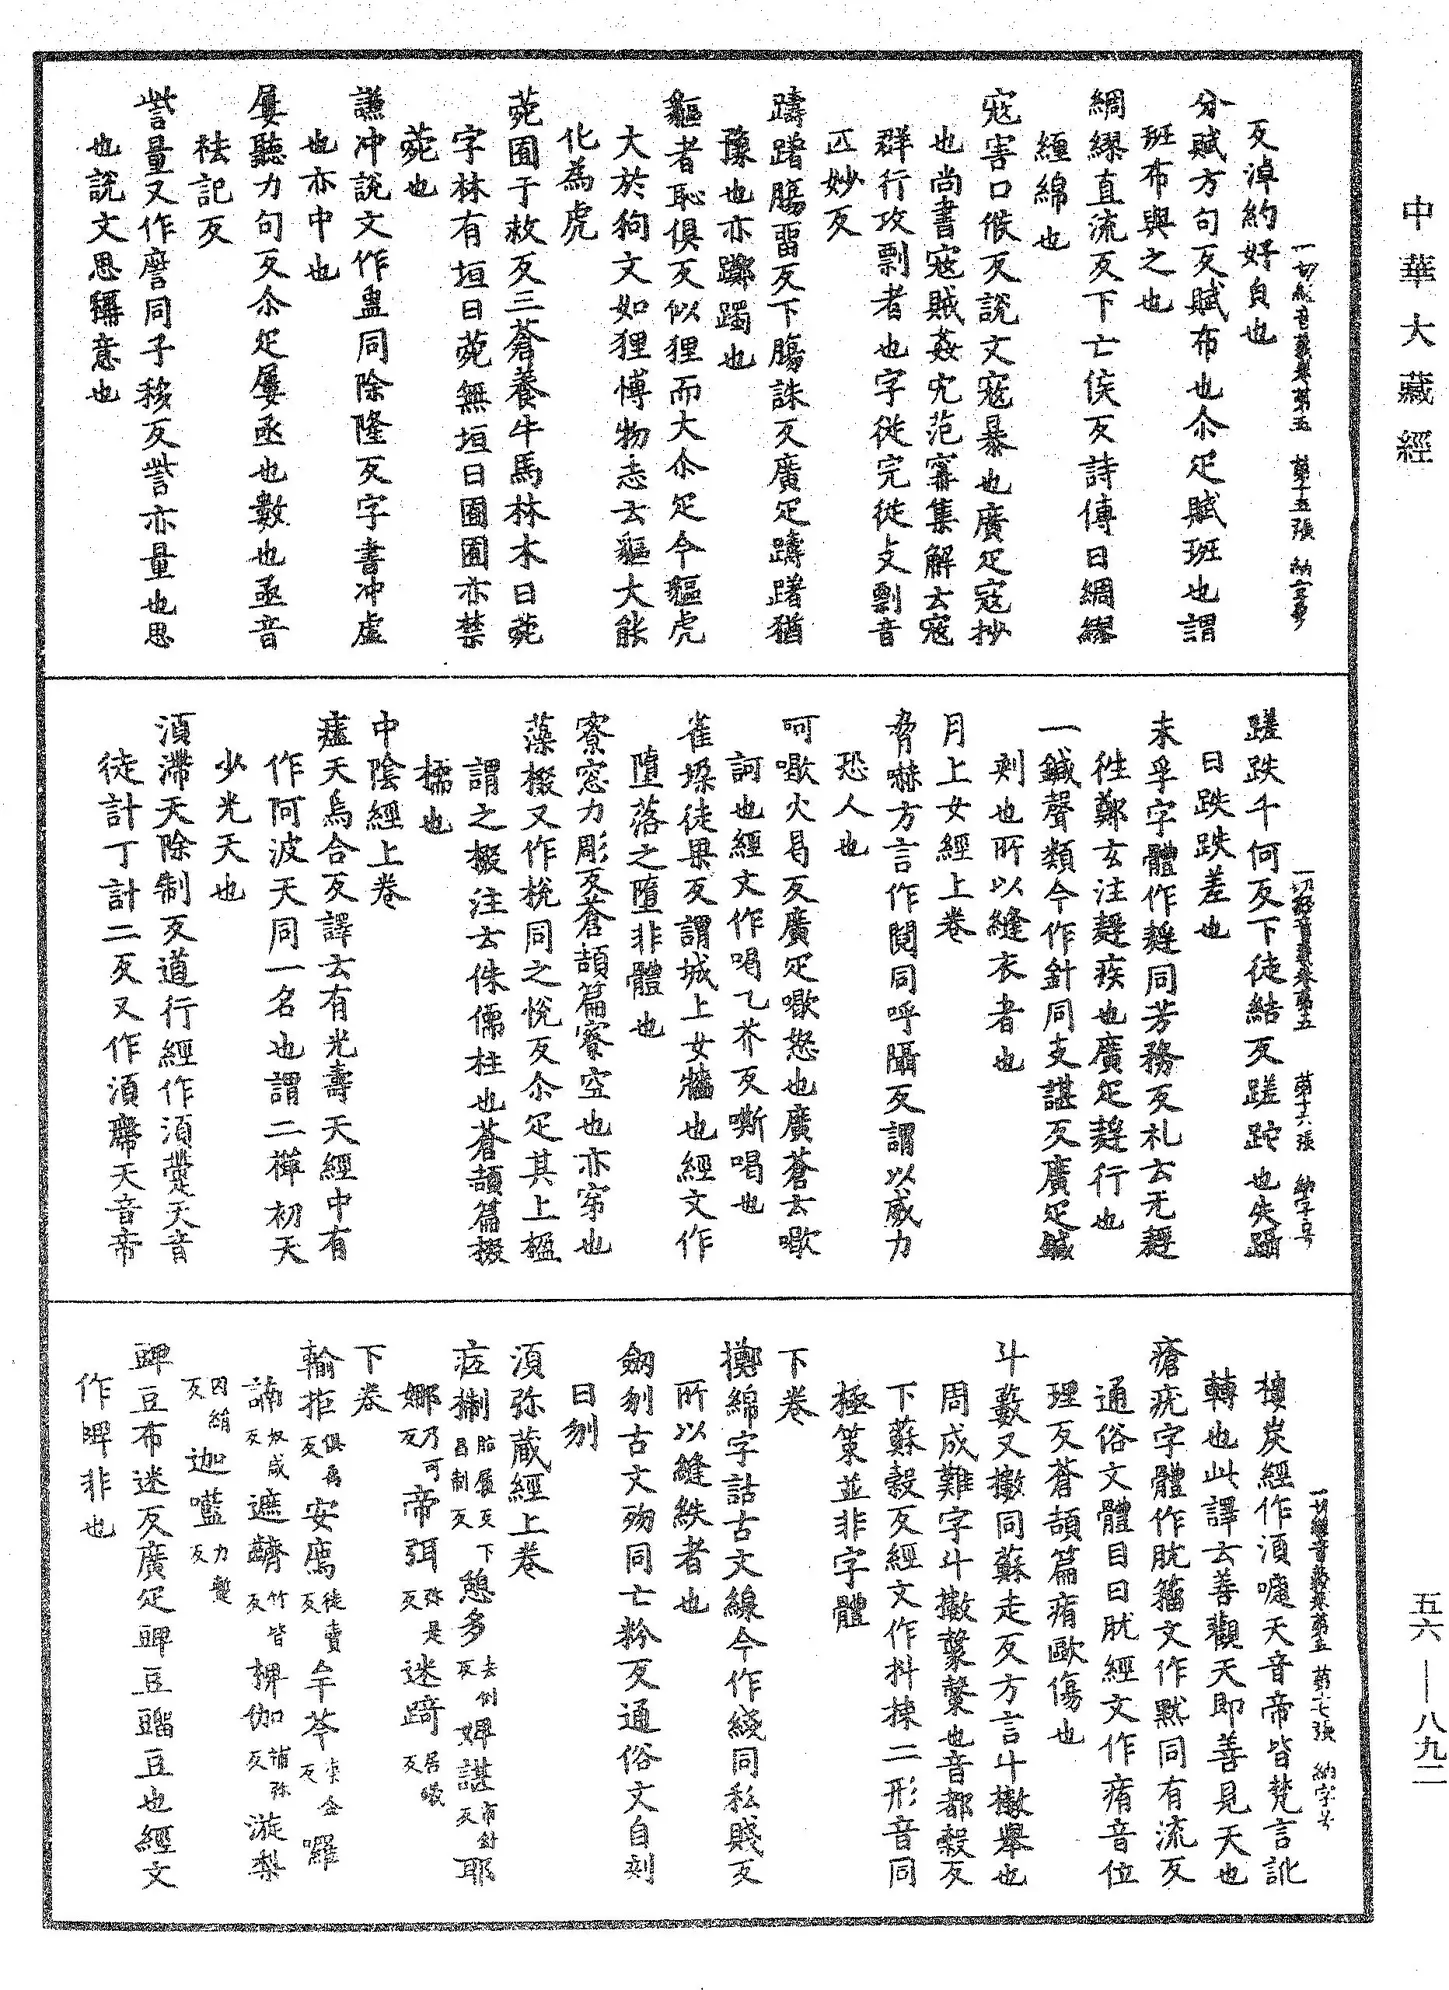 中華大藏經
一切經音義卷第五 第十五張 納字號
反淖約好皃也
分賦方句反賦布也尒疋賦班也謂
班布與之也
綢繆直流反下亡侯反詩傳曰綢繆
纏綿也
寇害口候反說文寇暴也廣疋寇抄
也尚書寇賊姦宄范甯集解云寇
群行攻剽者也字從完從攴剽音
匹妙反
躊躇腸留反下腸誅反廣疋躊躇猶
豫也亦躑躅也
貙者恥俱反似狸而大尒疋今貙虎
大於狗文如狸博物志云貙大能
化為虎
菀囿于救反三蒼養牛馬林木曰菀
字林有垣曰菀無垣曰囿囿亦禁
菀也
謙沖說文作盅同除隆反字書沖虛
也亦中也
屢聽力句反尒疋屢亟也數也亟音
袪記反
訾量又作䚹同子移反訾亦量也思
也說文思稱意也
一切經音義卷第五 第十六張 納字号
蹉跌千何反下徒結反蹉跎也失躡
曰跌跌差也
未孚字體作䞯同芳務反礼云无䞯
往鄭玄注䞯疾也廣疋䞯行也
一鍼聲類今作針同支諶反廣疋鍼
刾也所以縫衣者也
月上女經上卷
脅嚇方言作閱同呼隔反謂以威力
恐人也
呵喝火曷反廣疋喝怒也廣蒼云喝
訶也經文作喝乙芥反嘶喝也
雀垜徒果反謂城上女牆也經文作
墮落之墮非體也
寮窓力彫反蒼頡篇寮空也亦穿也
藻棳又作梲同之悅反尒疋其上楹
謂之棳注云侏儒柱也蒼頡篇棳
㯉也
中陰經上卷
𤸱天烏合反譯云有光壽天經中有
作阿波天同一名也謂二禪初天
少光天也
湏滯天除制反道行經作湏㿃天音
徒計丁計二反又作湏䶑天音帝
一切經音義卷第五 第十七張 納字号
樓炭經作湏嚏天音帝皆梵言訛
轉也此譯云善觀天即善見天也
瘡疣字體作肬籀文作黕同有流反
通俗文體目曰肬經文作痏音位
理反蒼頡篇痏歐傷也
斗藪又擻同蘇走反方言斗擻舉也
周成難字斗擻㲉㲉也音都穀反
下蘇穀反經文作抖揀二形音同
極策並非字體
下卷
擲綿字詁古文線今作綫同私賤反
所以縫紩者也
劒刎古文歾同亡粉反通俗文自刻
曰刎
湏弥藏經上卷
痃㨷胎履反下昌制反憩多去例反婢諶市針反耶
娜乃可反帝弭弥是反迷踦居蟻反
下卷
輸拒俱禹反安廌徒賣反佉芩渠金反囉
諵奴咸反遮齻竹皆反椑伽補弥反漩梨
因絹反迦嚂力甑反
豍豆布迷反廣疋豍豆豌豆也經文
作䏶非也
五六——八九二